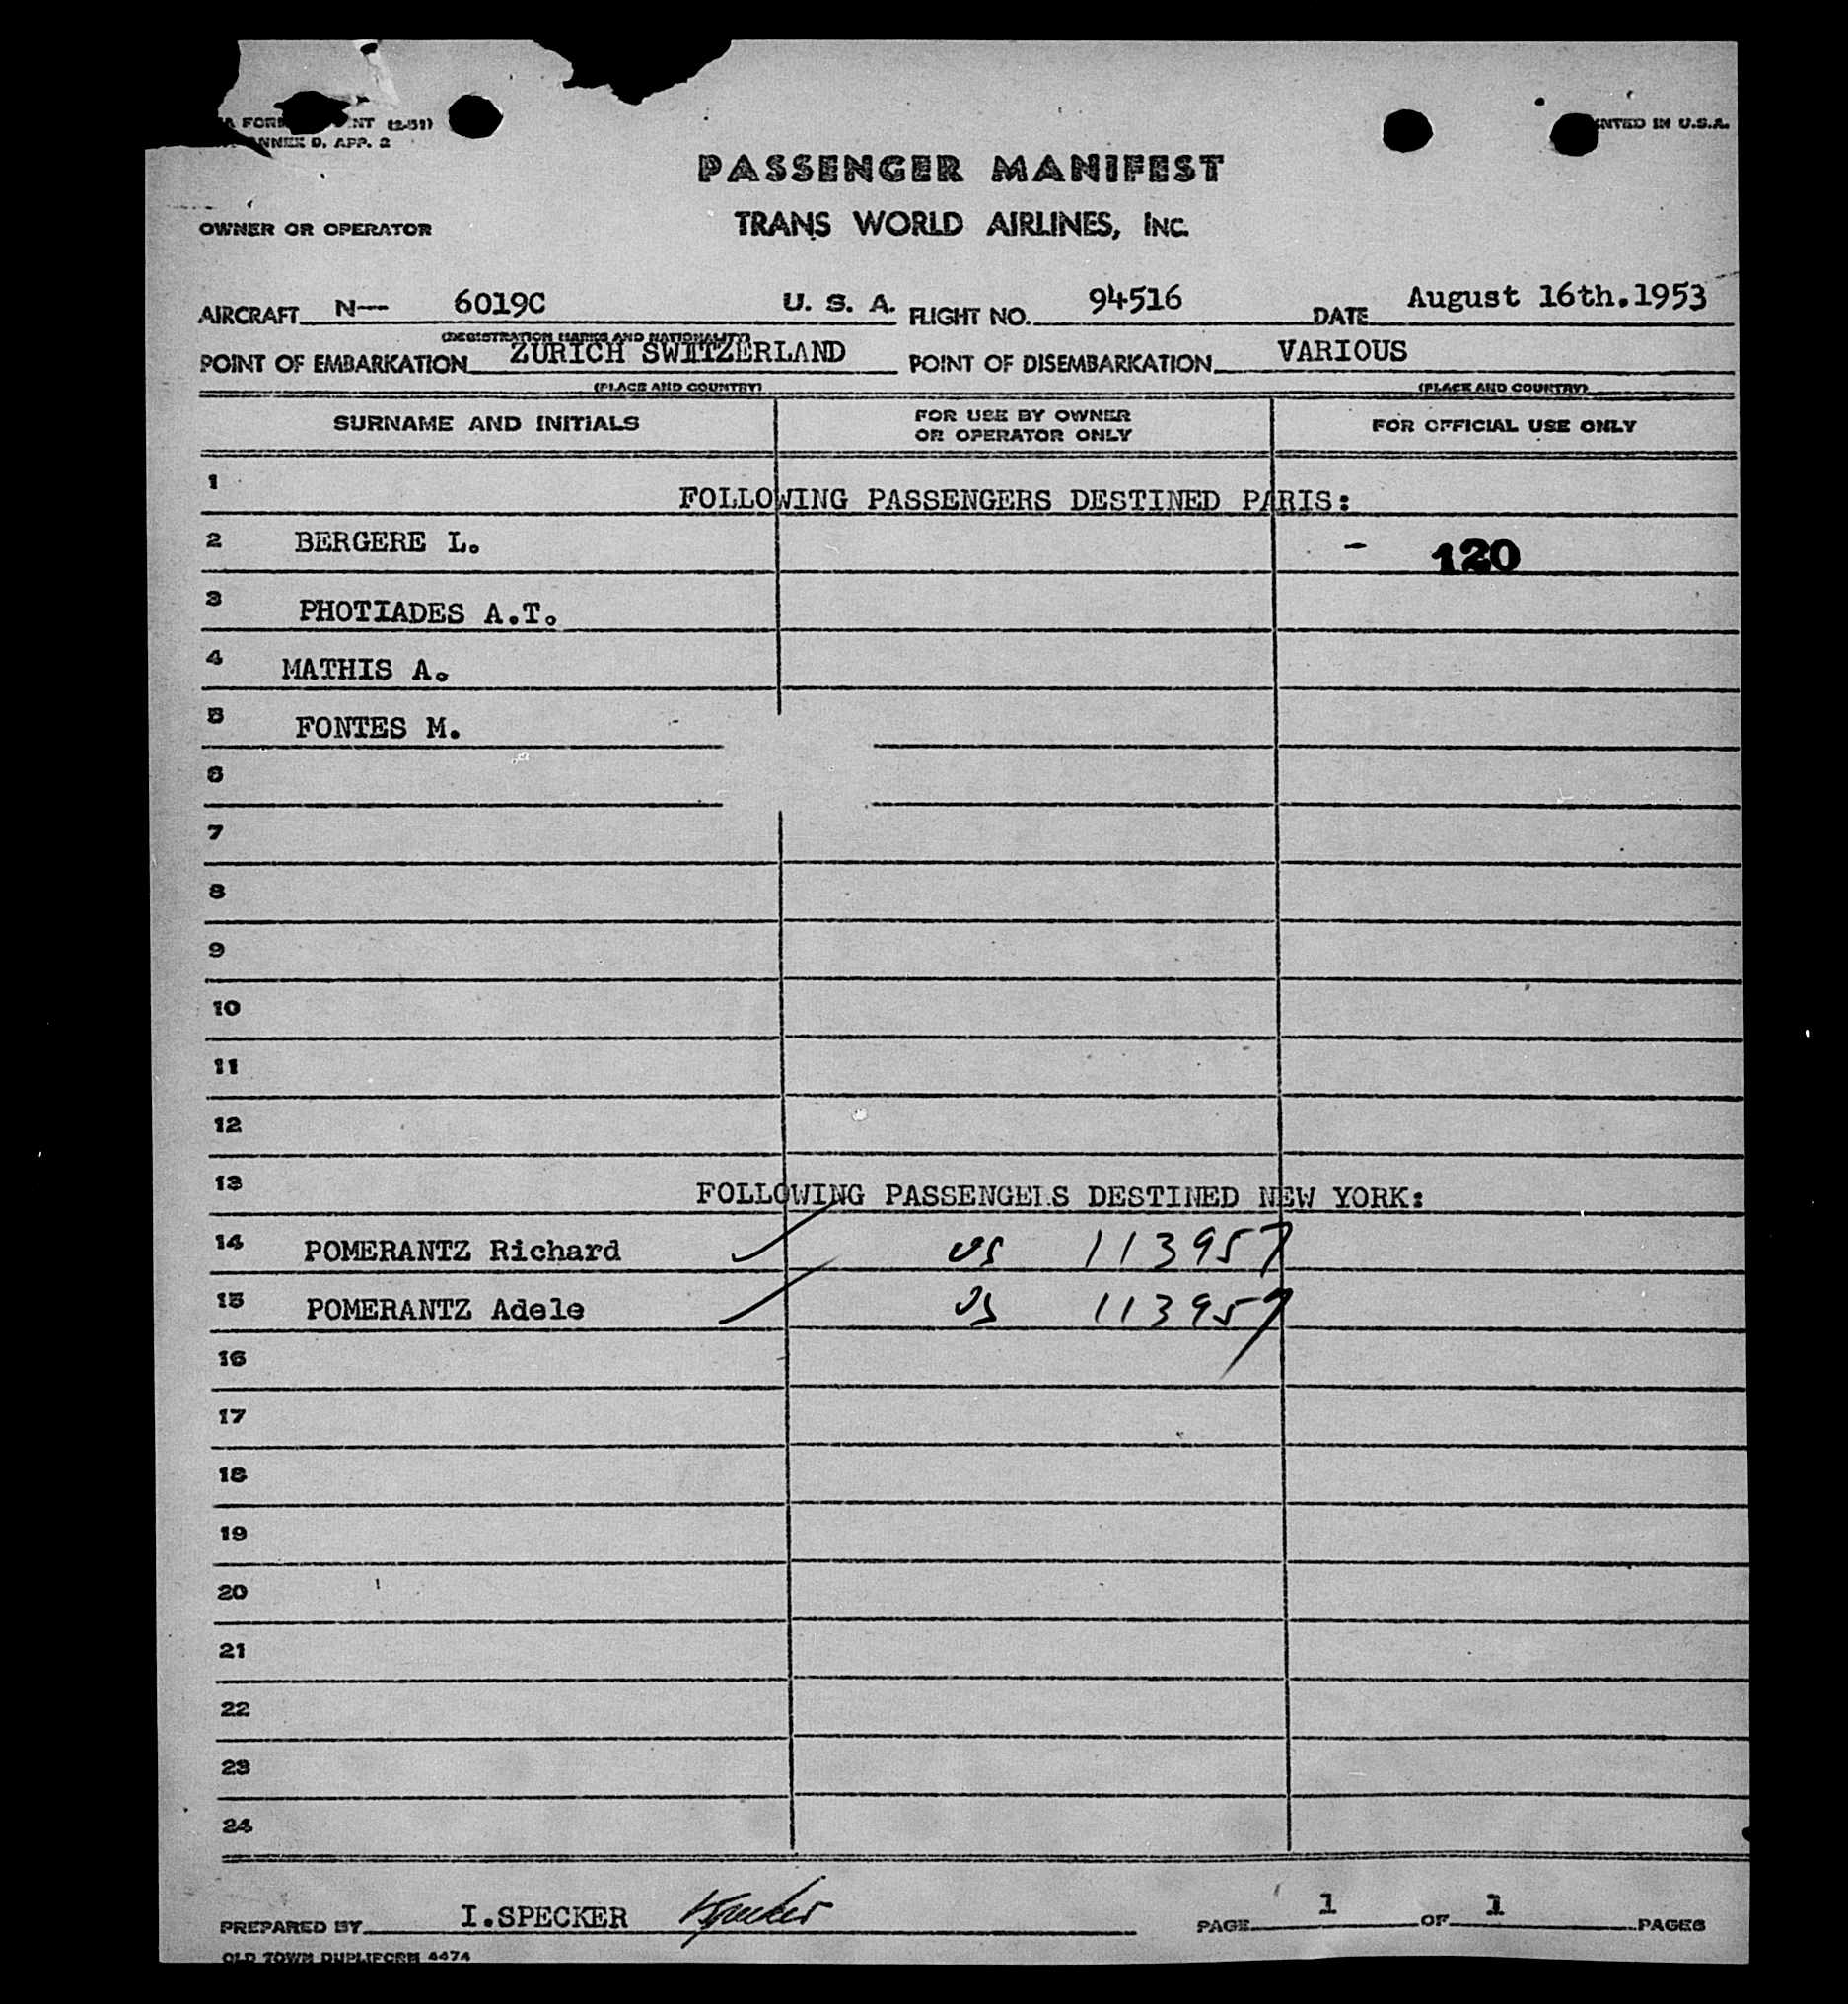 A FORM NT (2-51)
ANNEX D, APP. 2
NTED IN U.S.A.
PASSENGER MANIFEST
OWNER OR OPERATOR TRANS WORLD AIRLINES, INC.
AIRCRAFT N— 6019C U. S. A. FLIGHT NO. 94516 DATE August 16th.1953
(REGISTRATION MARKS AND NATIONALITY)
POINT OF EMBARKATION ZURICH SWITZERLAND POINT OF DISEMBARKATION VARIOUS
(PLACE AND COUNTRY) (PLACE AND COUNTRY)
SURNAME AND INITIALS FOR USE BY OWNER OR OPERATOR ONLY FOR OFFICIAL USE ONLY
1 FOLLOWING PASSENGERS DESTINED PARIS:
2 BERGERE L. - 120
3 PHOTIADES A.T.
4 MATHIS A.
5 FONTES M.
6
7
8
9
10
11
12
13 FOLLOWING PASSENGERS DESTINED NEW YORK:
14 POMERANTZ Richard US 113957
15 POMERANTZ Adele US 113957
16
17
18
19
20
21
22
23
24
PREPARED BY I.SPECKER Specker PAGE 1 OF 1 PAGES
OLD TOWN DUPLIFORM 4474